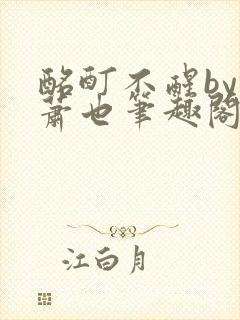 酩酊不醒by
萧也笔趣阁
江白月